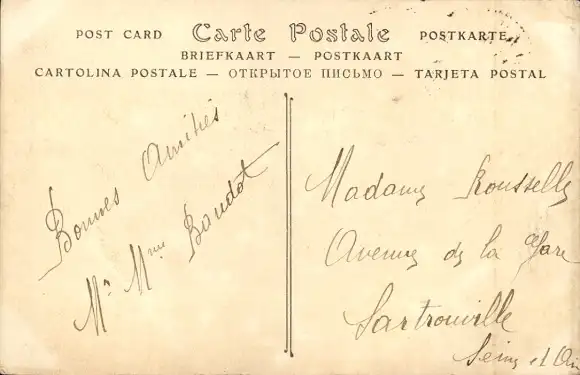 POST CARD Carte Postale POSTKARTE
BRIEFKAART — POSTKAART
CARTOLINA POSTALE — ОТКРЫТОЕ ПИСЬМО — TARJETA POSTAL
Bonnes Amitiés
Mr Mme Baudot
Madame Rousselle
Avenue de la Gare
Sartrouville
Seine et Oi